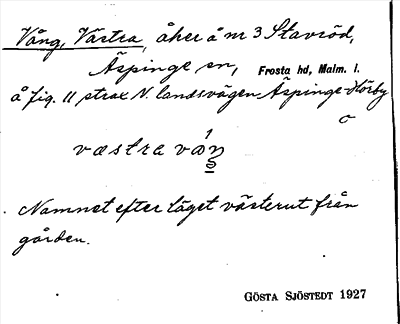 Vång, Västra, åker å nr 3 Stavröd,
Äspinge sn, Frosta hd, Malm. l.
å fig. 11 strax N. landsvägen Äspinge-Hörby
västra
Namnet efter läget västerut från
gården.
GÖSTA SJÖSTEDT 1927